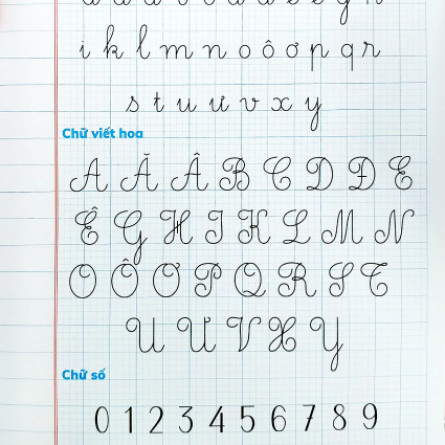 i k l m n o ô ơ p q r
s t u ư v x y
Chữ viết hoa
A Ă Â B C D Đ E
Ê G H I K L M N
O Ô Ơ P Q R S T
U Ư V X Y
Chữ số
0 1 2 3 4 5 6 7 8 9